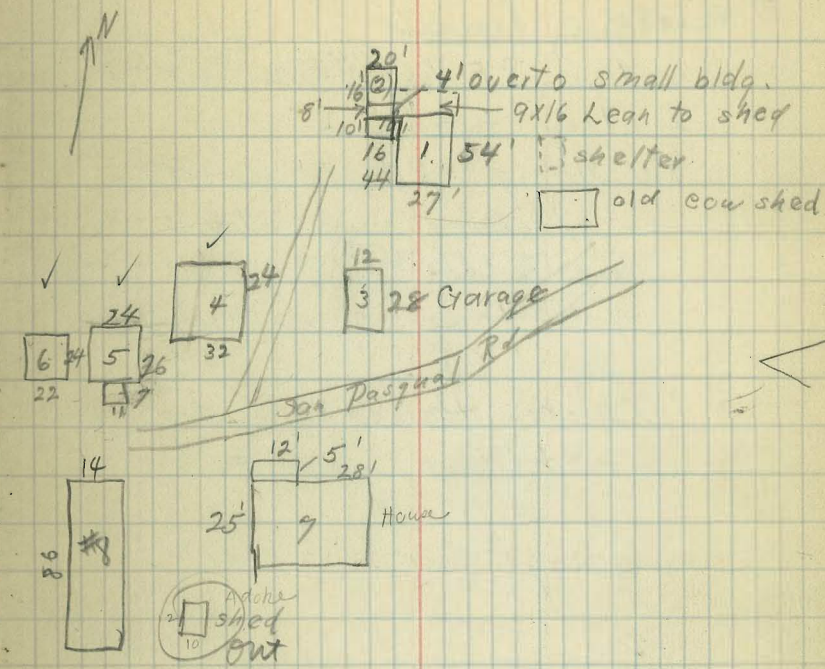 N
20'
16' (2) 4' over to small bldg.
8' 9x16 Lean to shed
10' 10'
16 1. 54' shelter
44
27' old cow shed
✓ ✓ ✓
12
24
4 3 28 Garage
24
6 24 5 26 32
22
11 7
San Pasqual Rd
14 12' 5'
28'
25' 7 House
#8
86
Adobe
shed
10
out